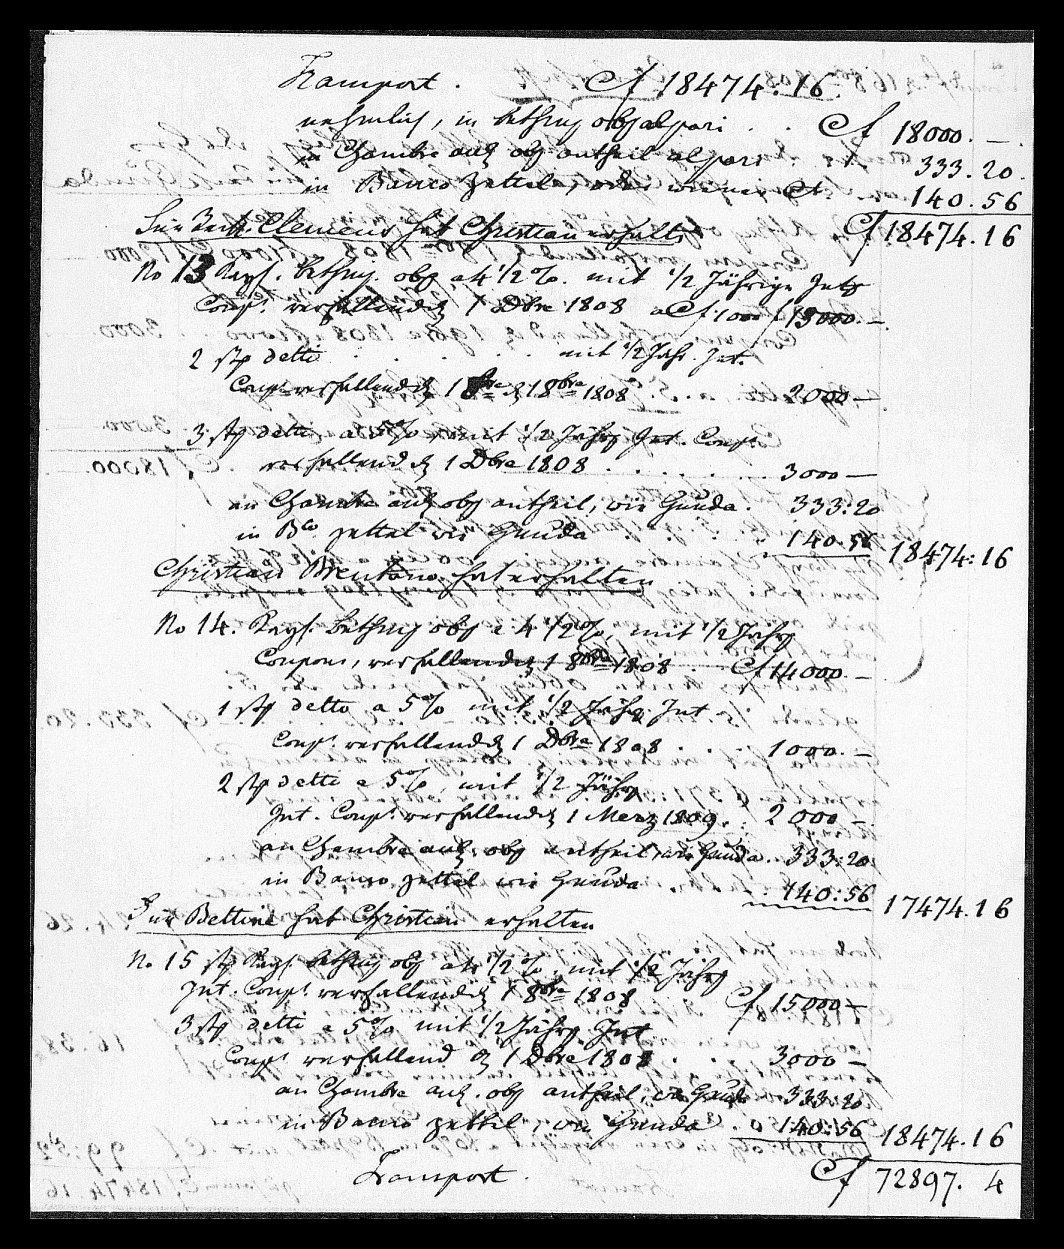 Transport . Cf 18474.16
nehmlich, in bethm obg al pari . . Cf 18000.—.
in Chambre auf obg antheil al pari . 333.20.
in Banco Zettel, oder wiener Ct. 140.56
Cf 18474.16
Für Clemens hat Christian erhalten
No 13 bethm. obg a 4 1/2 %. mit 1/2 Jährige Int
Coup. verfallend d 1 Dbre 1808 a Cf 1000 f 13000.—.
2 detto . . . . . . mit 1/2 Jäh. Int.
Coup. verfallend d 1 d 18bre 1808 . . . . 2000—
3 detto a 5 %, mit 1/2 Jähr Int. Coup.
verfallend d 1 Dbre 1808 . . . . . . 3000—
an Chambre auf obg antheil, wie Gunda . 333:20
in Bco. zettel wie Gunda . . . . 140.56 18474:16
Christian Brentano hat erhalten
No 14. bethm obg a 4 1/2 %, mit 1/2 Jähr
Coupons, verfallend d 1 8bre 1808 . — Cf 14000.—
1 detto a 5 % mit 1/2 Jähr Int
Coup. verfallend d 1 Dbre 1808 . . . 1000.—
2 detto a 5 %, mit 1/2 Jähr
Int. Coup. verfallend d 1 Merz 1809. . 2000—
an Chambre auf. obg antheil, wie Gunda. 333:20
in Banco zettel wie Gunda . . . 140:56 17474.16
Für Bettine hat Christian erhalten
No 15 bethm obg a 4 1/2 %, mit 1/2 Jähr
Int. Coup. verfallend d 1 8bre 1808 Cf 15000—
3 detto a 5 % mit 1/2 Jähr Int
Coup. verfallend d 1 Dbre 1808 . . . 3000—
an Chambre auf. obg antheil, wie Gunda 333:20
in Banco zettel, wie Gunda . . 140:56 18474.16
Transport . Cf 72897. 4